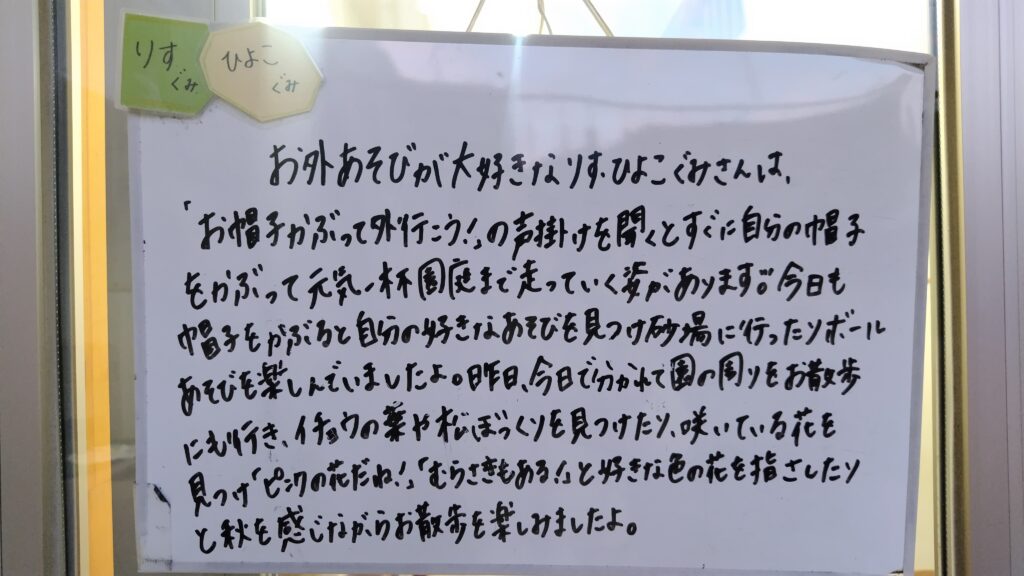 りすぐみ
ひよこぐみ
お外あそびが大好きなりす・ひよこぐみさんは、
「お帽子かぶって外行こう!」の声掛けを聞くとすぐに自分の帽子
をかぶって元気一杯園庭まで走っていく姿があります。今日も
帽子をかぶると自分の好きなあそびを見つけ砂場に行ったりボール
あそびを楽しんでいましたよ。昨日、今日で分かれて園の周りをお散歩
にも行き、イチョウの葉や松ぼっくりを見つけたり、咲いている花を
見つけ「ピンクの花だね!」「むらさきもある!」と好きな色の花を指さしたり
と秋を感じながらお散歩を楽しみましたよ。